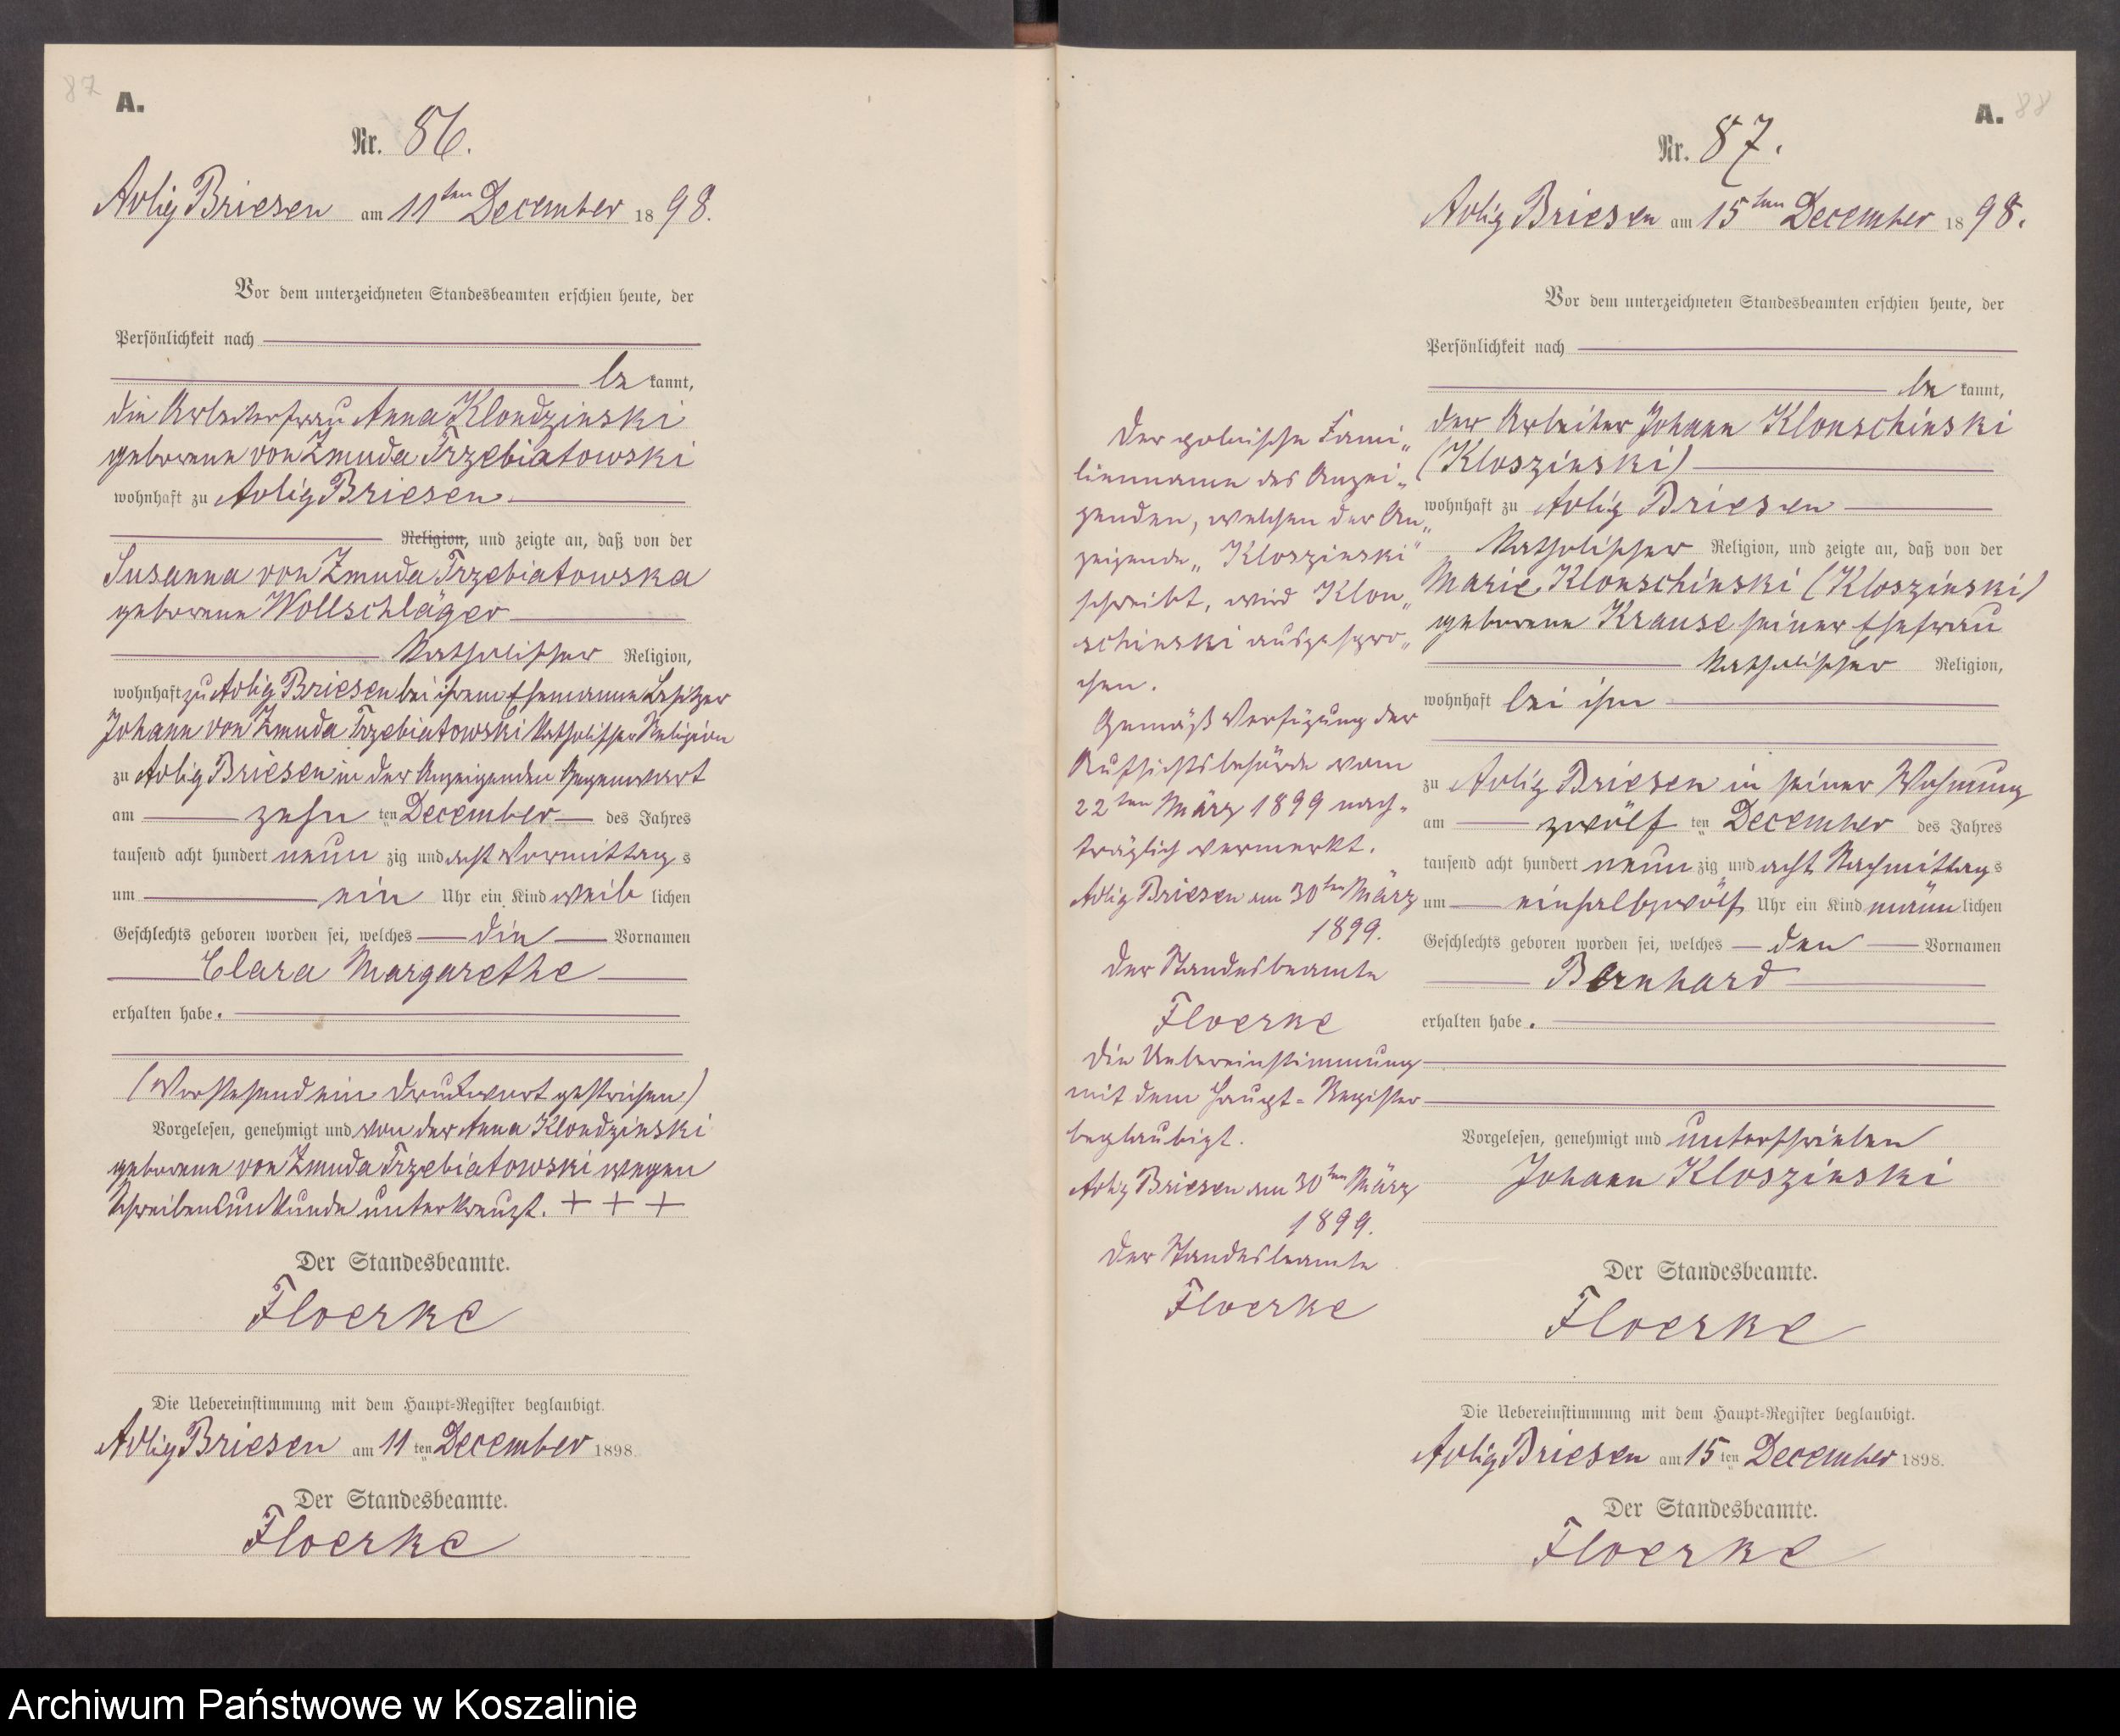 87
A.
Nr. 86.
Adlig Briesen am 11ten December 1898.
Vor dem unterzeichneten Standesbeamten erschien heute, der
Persönlichkeit nach
be kannt,
die Arbeiterfrau Anna Klondzinski
geborene von Zmuda Trzebiatowski
wohnhaft zu Adlig Briesen
Religion, und zeigte an, daß von der
Susanna von Zmuda Trzebiatowska
geborene Wollschläger
Katholischer Religion,
wohnhaft zu Adlig Briesen bei ihrem Ehemanne Besitzer
Johann von Zmuda Trzebiatowski Katholischer Religion
zu Adlig Briesen in der Anzeigenden Gegenwart
am zehn ten December des Jahres
tausend acht hundert neun zig und acht Vormittag s
um ein Uhr ein Kind weib lichen
Geschlechts geboren worden sei, welches die Vornamen
Clara Margarethe
erhalten habe.
(Vorstehend ein Druckwort gestrichen)
Vorgelesen, genehmigt und von der Anna Klondzinski
geborene von Zmuda Trzebiatowski wegen
Schreibensunkunde unterkreuzt. + + +
Der Standesbeamte.
Floerke
Die Uebereinstimmung mit dem Haupt-Register beglaubigt.
Adlig Briesen am 11 ten December 1898.
Der Standesbeamte.
Floerke
A. 88
Nr. 87.
Adlig Briesen am 15ten December 1898.
Vor dem unterzeichneten Standesbeamten erschien heute, der
Persönlichkeit nach
be kannt,
der Arbeiter Johann Klonschinski
(Kloszinski)
wohnhaft zu Adlig Briesen
Katholischer Religion, und zeigte an, daß von der
Marie Klonschinski (Kloszinski)
geborene Krause seiner Ehefrau
Katholischer Religion,
wohnhaft bei ihm
zu Adlig Briesen in seiner Wohnung
am zwölf ten December des Jahres
tausend acht hundert neun zig und acht Nachmittag s
um einhalbzwölf Uhr ein Kind männ lichen
Geschlechts geboren worden sei, welches den Vornamen
Bernhard
erhalten habe.
Vorgelesen, genehmigt und unterschrieben
Johann Kloszinski
Der Standesbeamte.
Floerke
Die Uebereinstimmung mit dem Haupt-Register beglaubigt.
Adlig Briesen am 15 ten December 1898.
Der Standesbeamte.
Floerke
Der polnische Fami„
lienname des Anzei„
genden, welchen der An„
zeigende „Kloszinski"
schreibt, wird Klon„
schinski ausgespro„
chen.
Gemäß Verfügung der
Aufsichtsbehörde vom
22ten März 1899 nach-
träglich vermerkt.
Adlig Briesen am 30ten März
1899.
Der Standesbeamte
Floerke
Die Uebereinstimmung
mit dem Haupt-Register
beglaubigt.
Adlig Briesen am 30ten März
1899.
Der Standesbeamte
Floerke
Archiwum Państwowe w Koszalinie